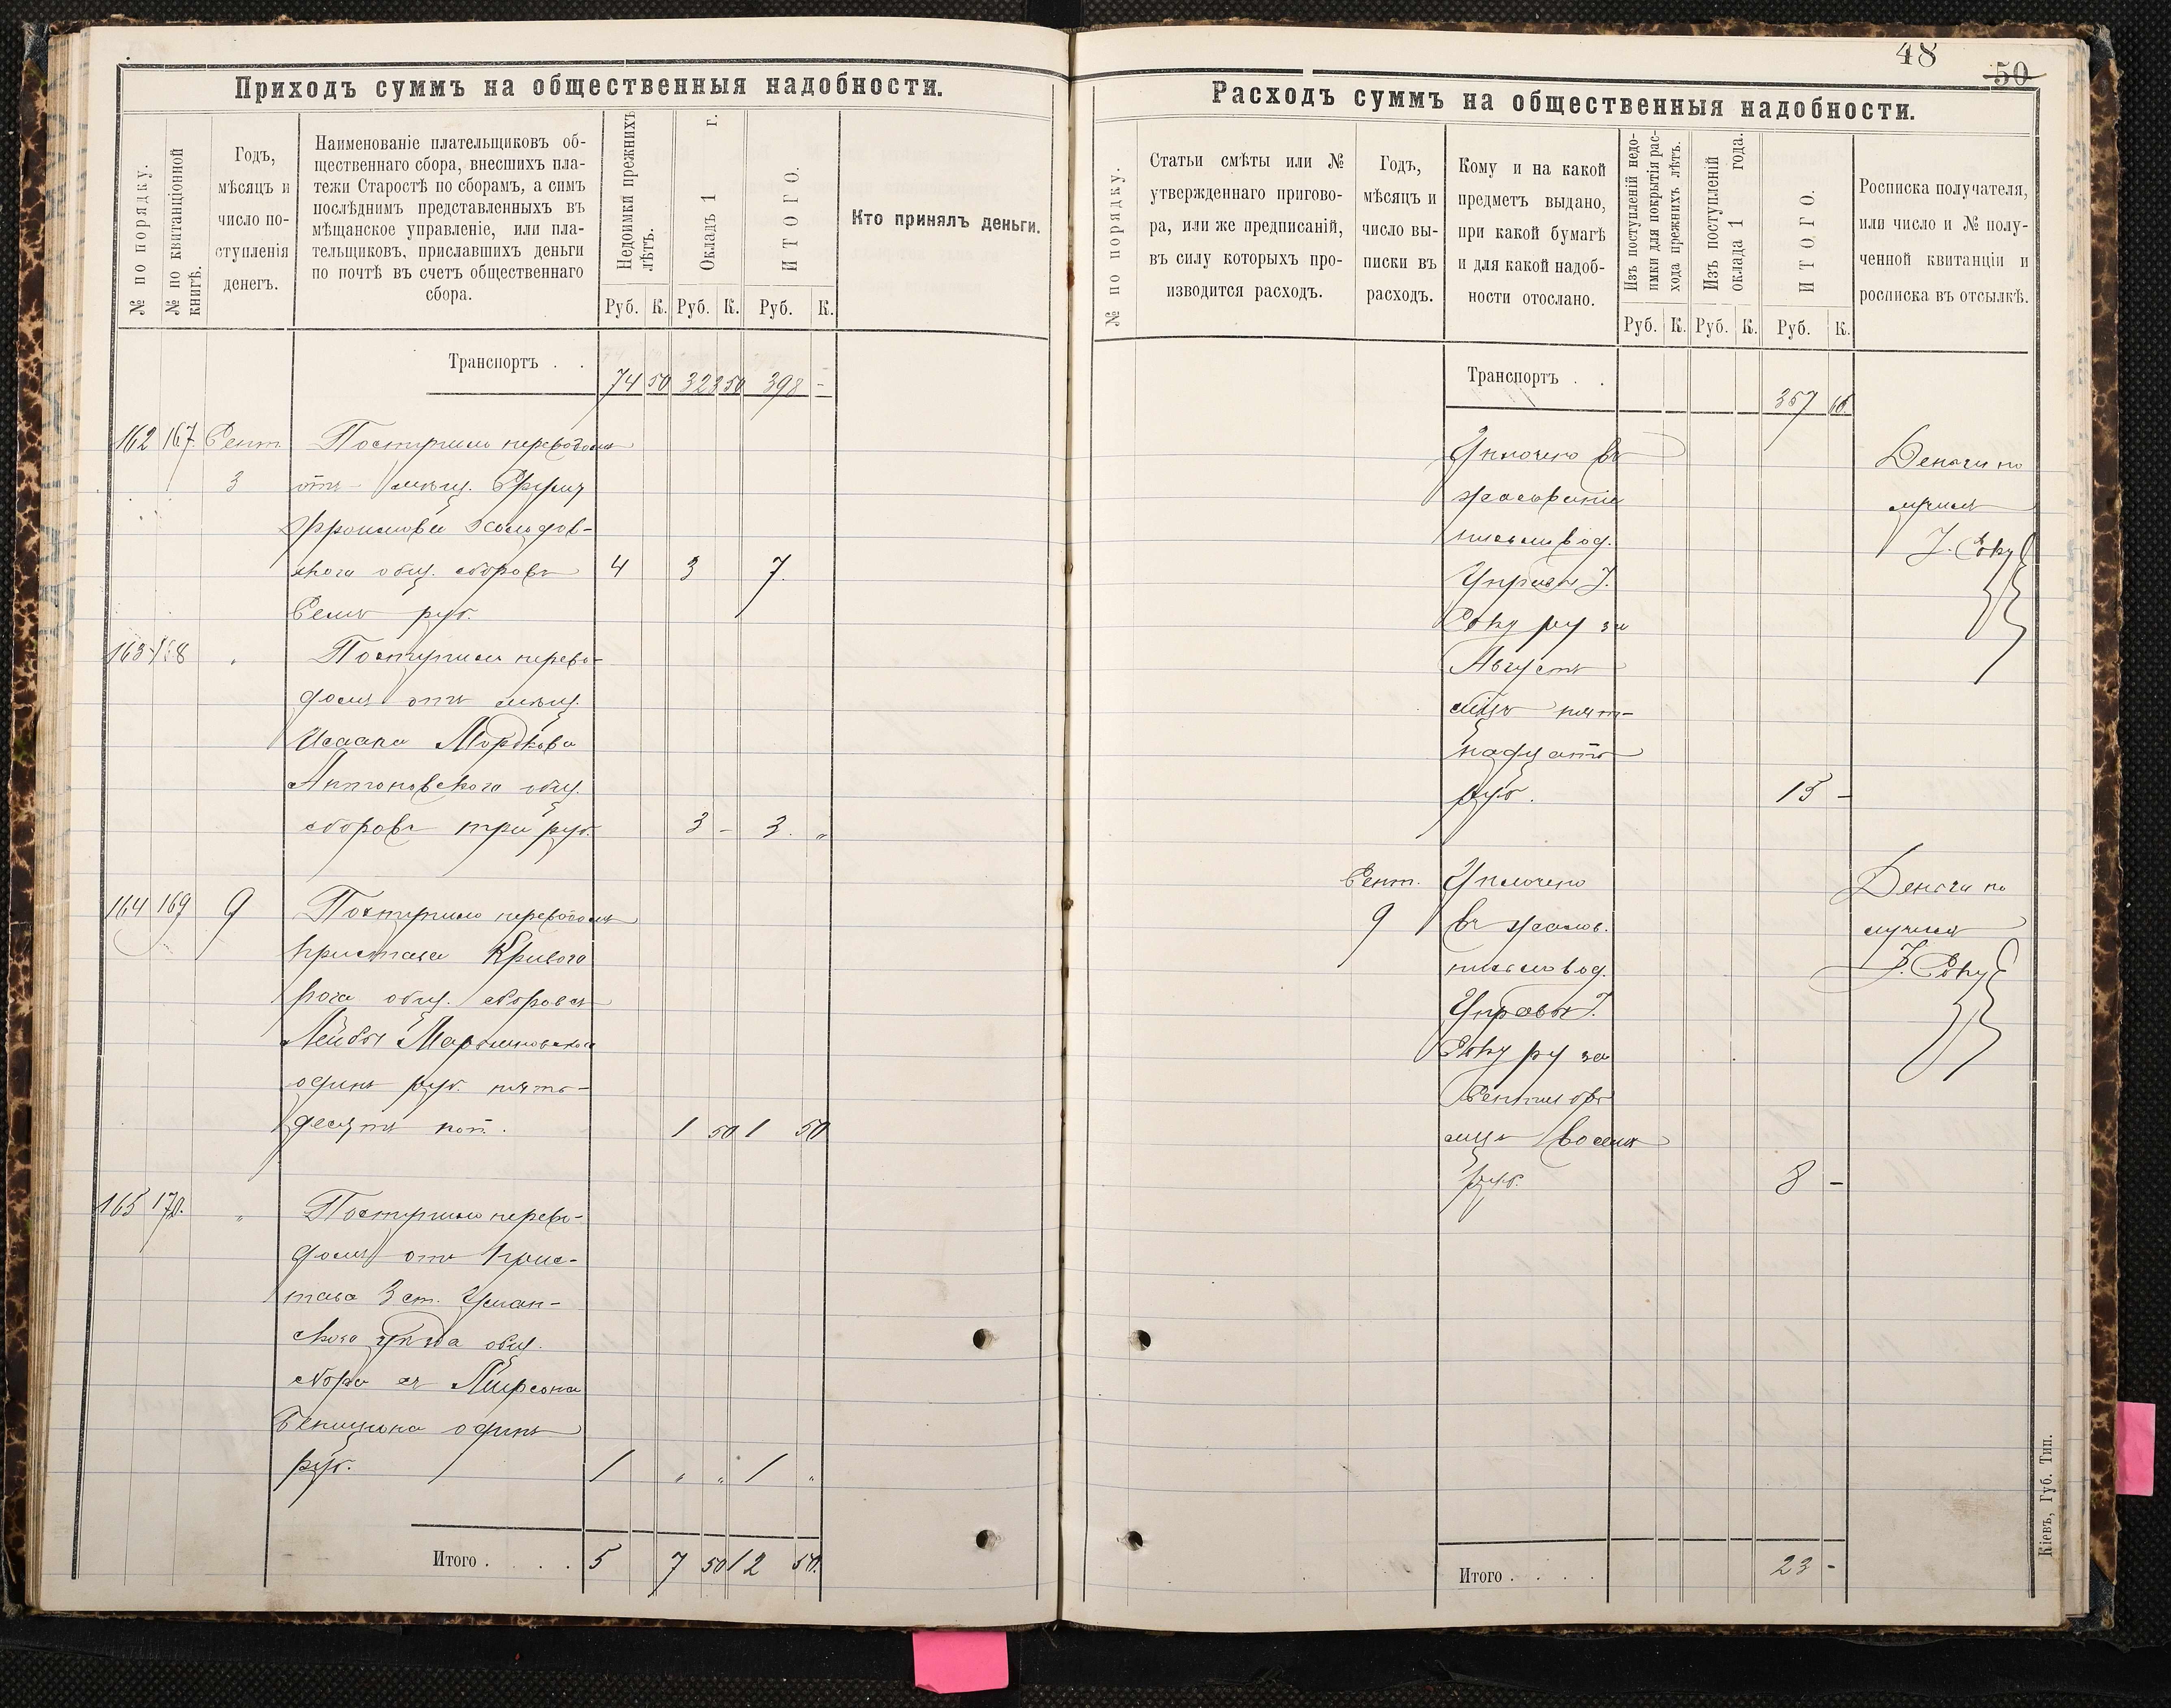 48
50
Приходъ суммъ на общественныя надобности.
№ по порядку.
№ по квитанціонной
книгѣ.
Годъ,
мѣсяцъ и
число по-
ступленія
денегъ.
Наименованіе плательщиковъ об-
щественнаго сбора, внесшихъ пла-
тежи Старостѣ по сборамъ, а симъ
послѣднимъ представленныхъ въ
мѣщанское управленіе, или пла-
тельщиковъ, приславшихъ деньги
по почтѣ въ счетъ общественнаго
сбора.
Недоимки прежнихъ
лѣтъ.
Окладъ 1 г.
ИТОГО.
Кто принялъ деньги.
Руб. К. Руб. К. Руб. К.
Транспортъ . . 74 50 323 50 398 –
162 167. Сент. Поступило переводомъ
3 отъ мѣщ.
скаго общ. сборовъ 4 3 7.
Семь руб.
163 168 " Поступило перево-
домъ отъ мѣщ.
Исаака Мордкова
Антоновскаго общ.
сборовъ три руб. 3 – 3. "
164 169 9 Поступило переводомъ
пристава Кривого
рога общ. сборовъ
Лейбы
одинъ руб. пять-
десятъ коп. 1 50 1 50
165 170. " Поступило перево-
домъ отъ прис-
тава 3 ст. Уман-
скаго уѣзда общ.
сбора съ
одинъ
руб. 1 " " 1 "
Итого . . . . 5 7 50 12 50.
Расходъ суммъ на общественныя надобности.
№ по порядку.
Статьи смѣты или №
утвержденнаго пригово-
ра, или же предписаній,
въ силу которыхъ про-
изводится расходъ.
Годъ,
мѣсяцъ и
число вы-
писки въ
расходъ.
Кому и на какой
предметъ выдано,
при какой бумагѣ
и для какой надоб-
ности отослано.
Изъ поступленій недо-
имки для покрытія рас-
хода прежнихъ лѣтъ.
Изъ поступленій
оклада 1 года.
ИТОГО.
Росписка получателя,
или число и № полу-
ченной квитанціи и
росписка въ отсылкѣ.
Руб. К. Руб. К. Руб. К.
Транспортъ . . 357
Уплочено въ Деньги по
жалованіе лучилъ
письмовод.
Управы І.
за
Августъ
мѣцъ пят-
надцать
руб. 15 –
Сент. Уплочено Деньги по
9 въ жалов. лучилъ
письмовод.
Управы І.
за
Сентябрь
мцъ восемь
руб. 8 –
Итого . . . . 23 –
Кіевъ, Губ. Тип.